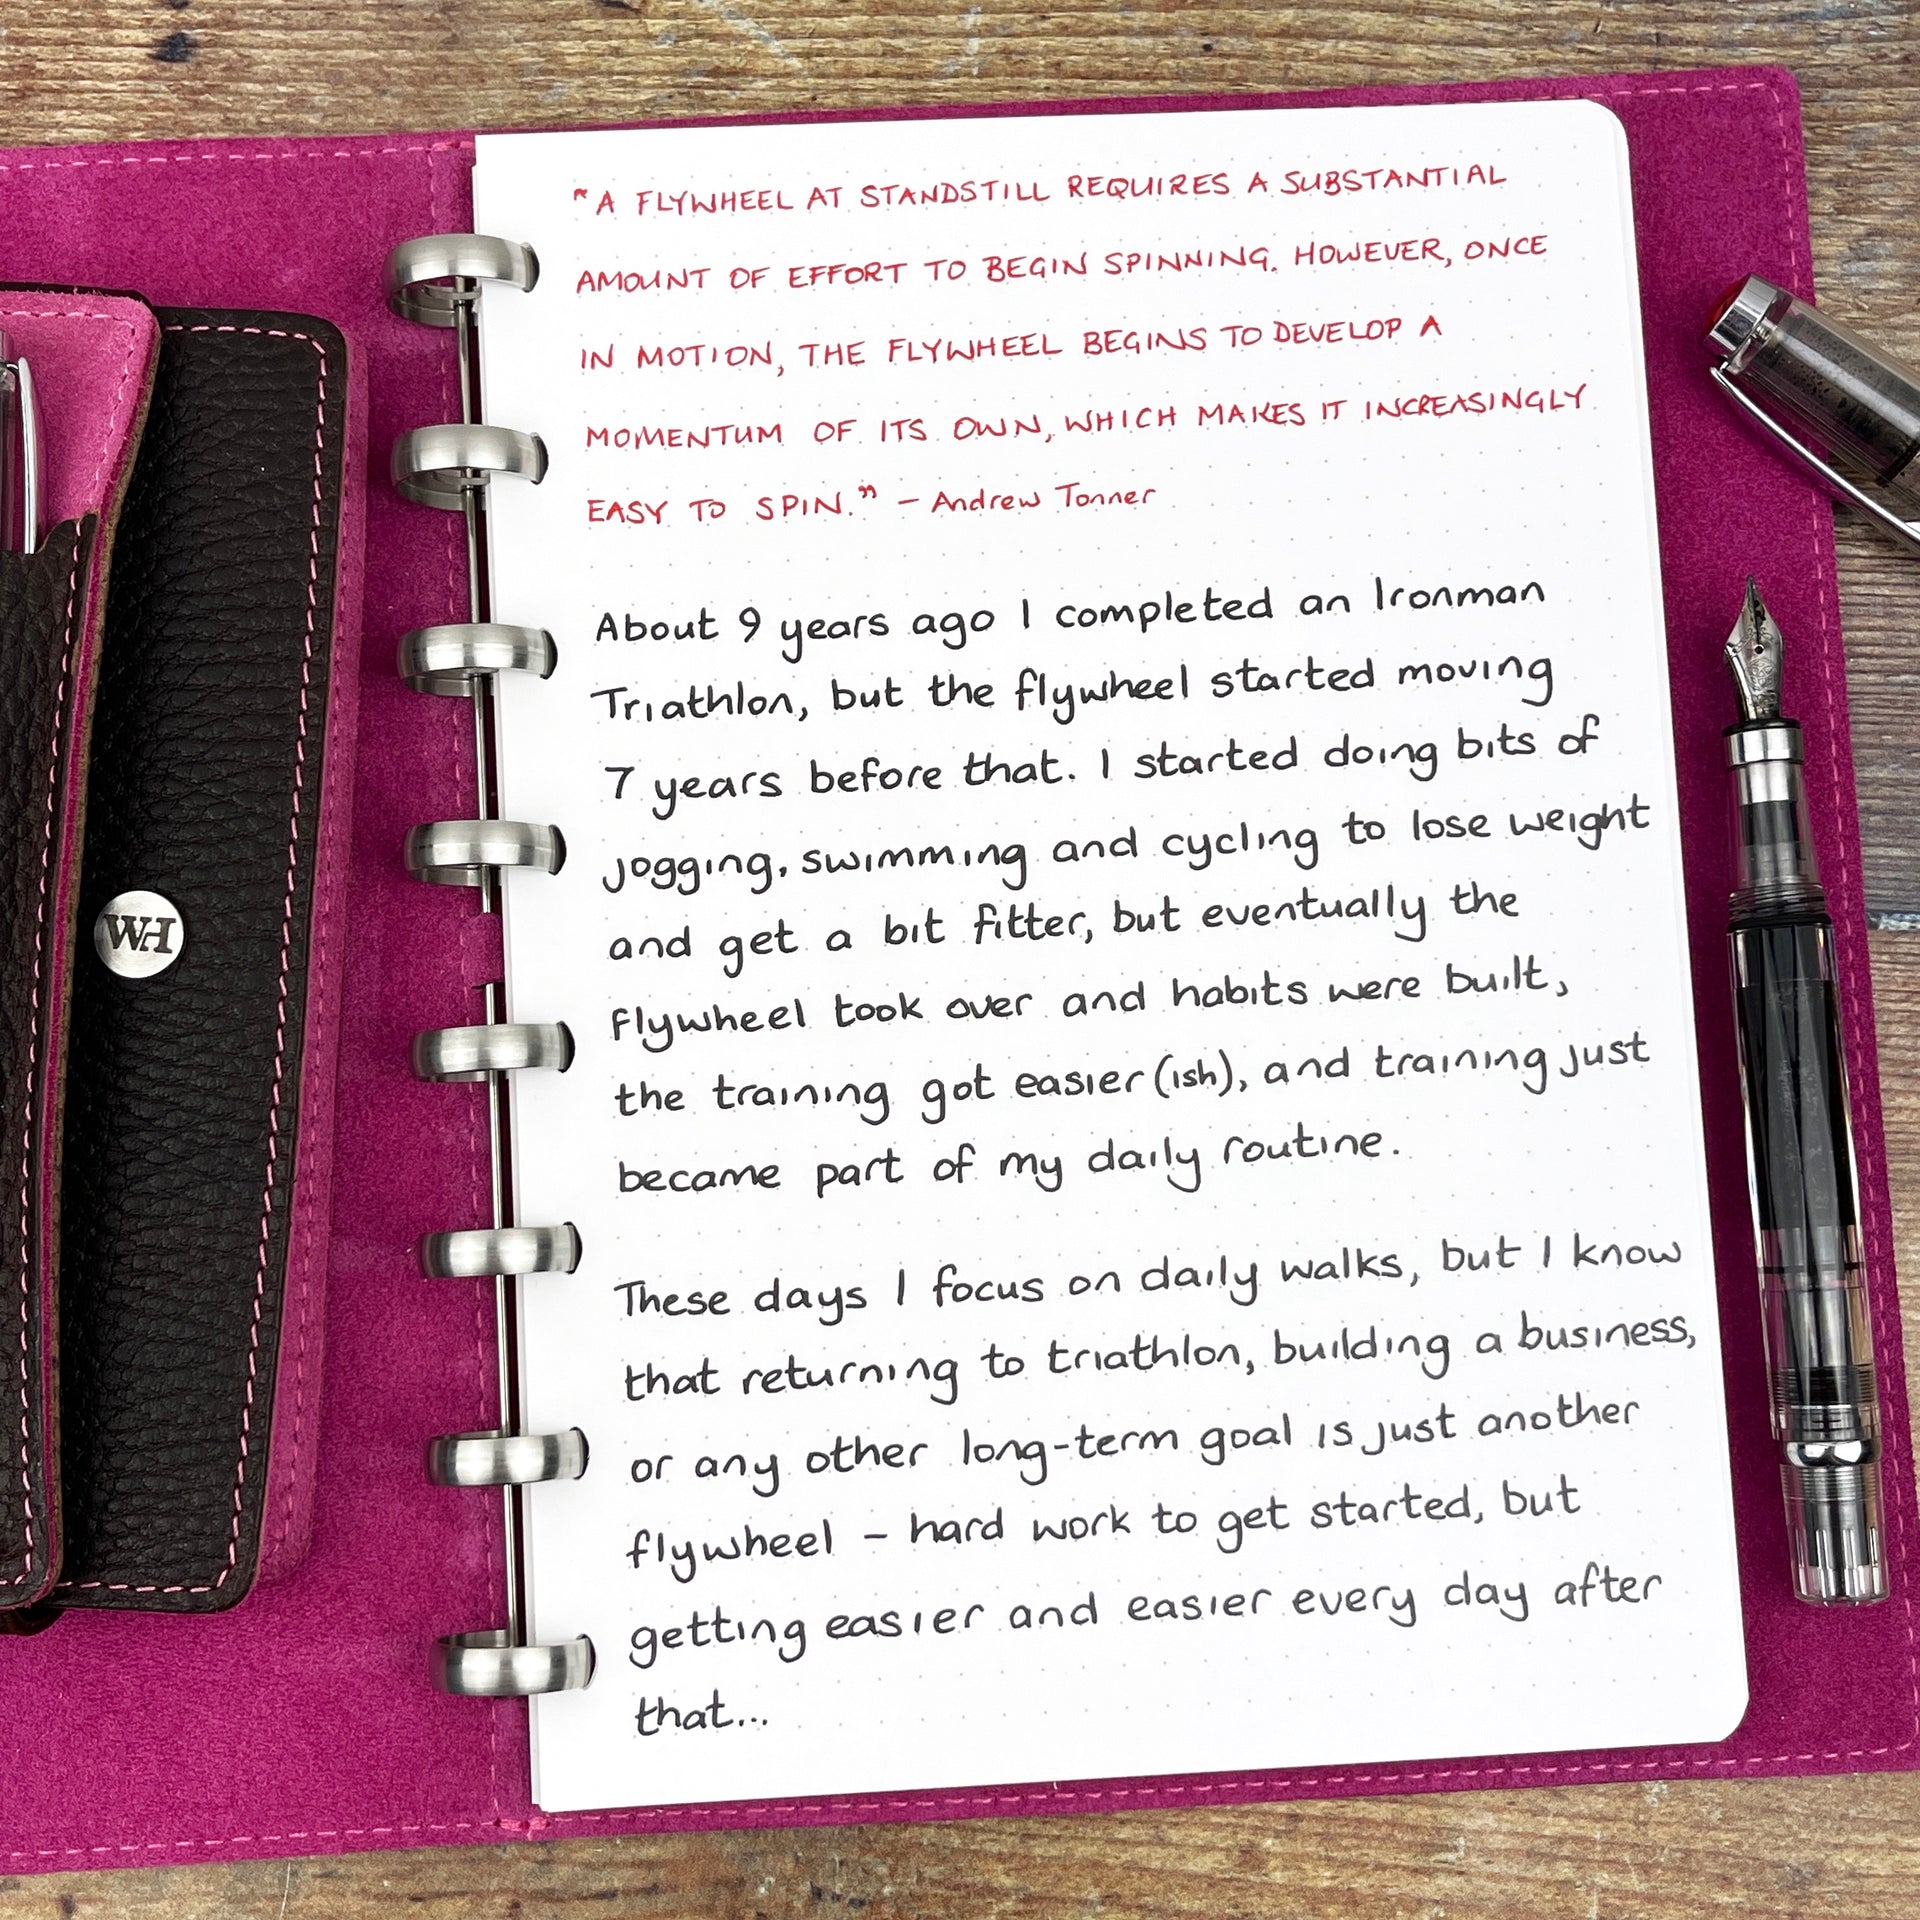 "A FLYWHEEL AT STANDSTILL REQUIRES A SUBSTANTIAL
AMOUNT OF EFFORT TO BEGIN SPINNING. HOWEVER, ONCE
IN MOTION, THE FLYWHEEL BEGINS TO DEVELOP A
MOMENTUM OF ITS OWN, WHICH MAKES IT INCREASINGLY
EASY TO SPIN." – Andrew Tonner
About 9 years ago I completed an Ironman
Triathlon, but the flywheel started moving
7 years before that. I started doing bits of
jogging, swimming and cycling to lose weight
and get a bit fitter, but eventually the
flywheel took over and habits were built,
the training got easier (ish), and training just
became part of my daily routine.
These days I focus on daily walks, but I know
that returning to triathlon, building a business,
or any other long-term goal is just another
flywheel – hard work to get started, but
getting easier and easier every day after
that...
WH